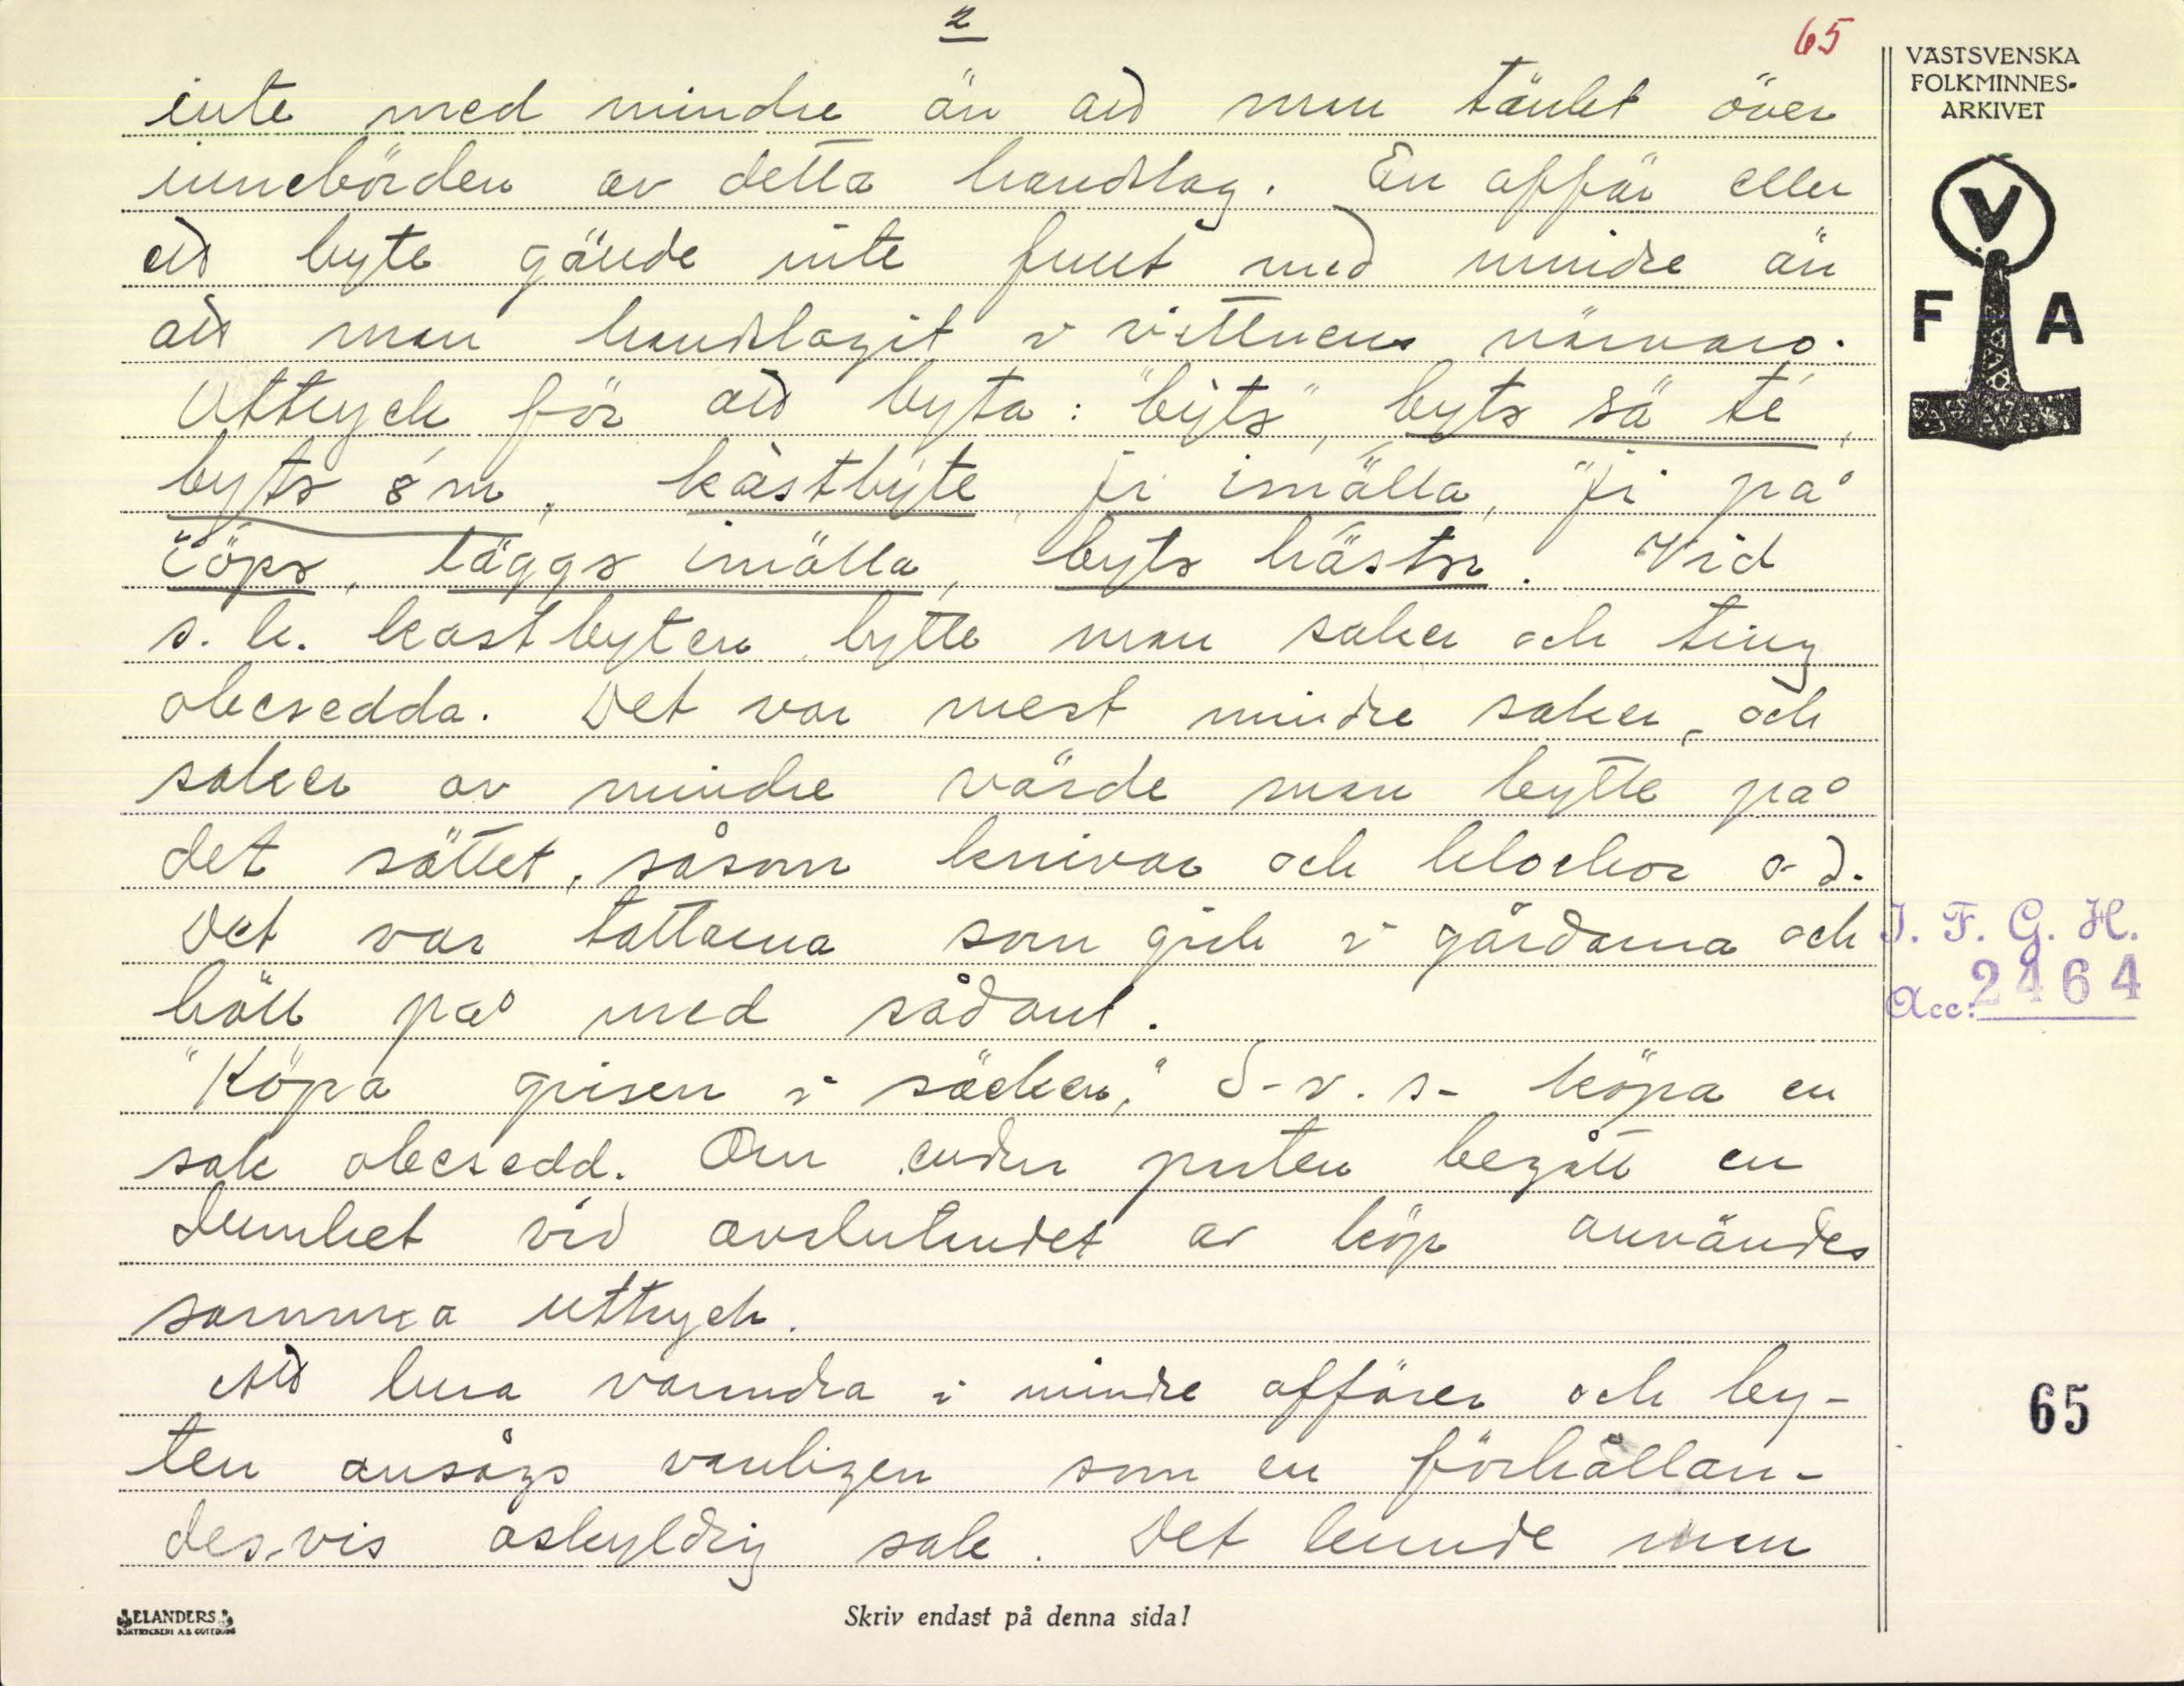 2
65
VÄSTSVENSKA
FOLKMINNES-
ARKIVET
V
F A
inte med mindre än att man tänkt över
innebörden av detta handslag. En affär eller
ett byte gällde inte förut med mindre än
att man handslagit i vittnens närvaro.
Uttryck för att byta: "býts", byts sä té,
byts o´m, kàstbýte, ji imälla, "ji på
čöps, läggs imälla, byts hästar. Vid
s. k. kastbyten bytte man saker och ting
obesedda. Det var mest mindre saker, och
saker av mindre värde man bytte på
det sättet, såsom knivar och klockor o. d.
Det var tattarna som gick i gårdarna och
höll på med sådant.
"Köpa grisen i säcken," d. v. s. köpa en
sak obesedd. Om endera parten begått en
dumhet vid avslutandet av köp användes
samma uttryck.
Att lura varandra i mindre affärer och by-
ten ansågs vanligen som en förhållan-
des-vis oskyldig sak. Det kunde man
I. F. G. H.
Acc: 2464
65
ELANDERS
BOKTRYCKERI A.B. GÖTEBORG
Skriv endast på denna sida!